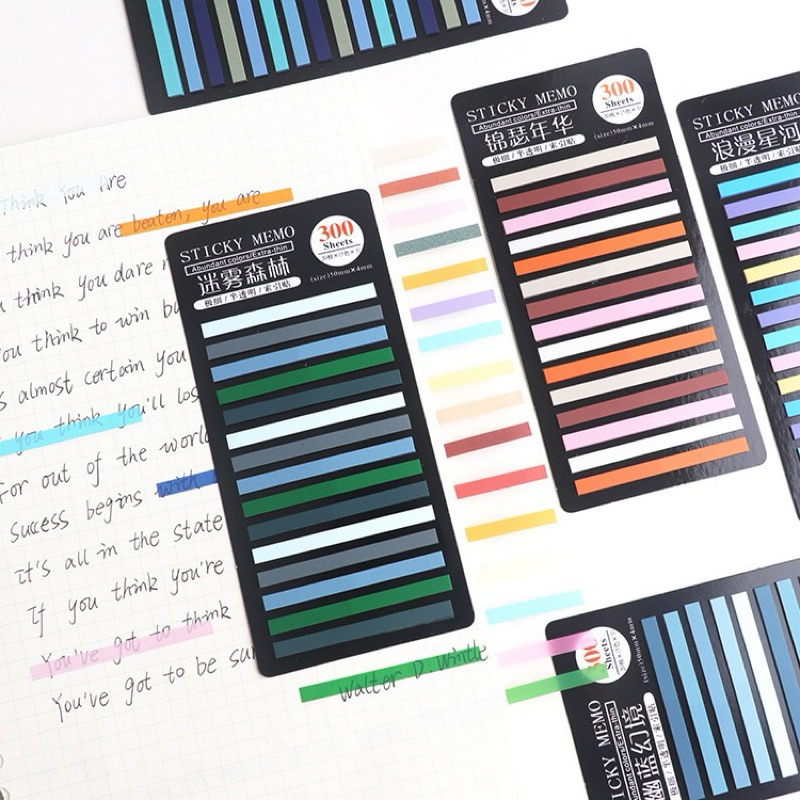 Think You Are
think you are beaten, you are
think you dare
think to win
almost certain you
you think you'll los
For out of the world
success begins with
it's all in the state
If you think you're
You've got to think
You've got to be sur
Walter D. Wintle
STICKY MEMO
Abundant colors/Extra-thin
迷雾森林
极细/半透明/索引贴
300
Sheets
(size)50mm×4mm
STICKY MEMO
Abundant colors/Extra-thin
锦瑟年华
极细/半透明/索引贴
300
Sheets
(size)50mm×4mm
STICKY MEMO
Abundant colors/Extra-thin
浪漫星河
极细/半透明/索引贴
ICKY MEMO
Abundant colors/Extra-thin
幽蓝幻境
极细/半透明/索引贴
Sheets
(size)50mm×4mm